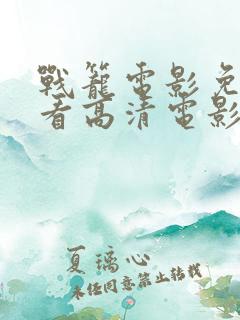 戰籠電影免
看高清電影
夏璃心
未经同意禁止转载